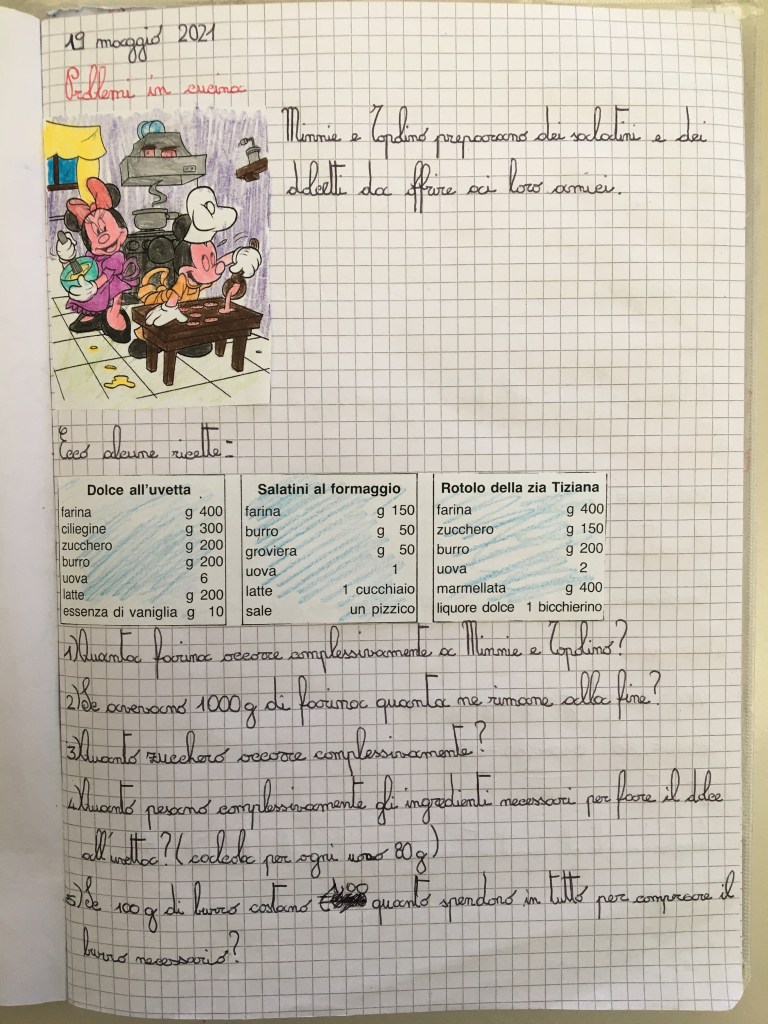 19 maggio 2021
Problemi in cucina
Minnie e Topolino preparano dei salatini e dei
dolcetti da offrire ai loro amici.
Ecco alcune ricette:
Dolce all'uvetta
farina g 400
ciliegine g 300
zucchero g 200
burro g 200
uova 6
latte g 200
essenza di vaniglia g 10
Salatini al formaggio
farina g 150
burro g 50
groviera g 50
uova 1
latte 1 cucchiaio
sale un pizzico
Rotolo della zia Tiziana
farina g 400
zucchero g 150
burro g 200
uova 2
marmellata g 400
liquore dolce 1 bicchierino
1) Quanta farina occorre complessivamente a Minnie e Topolino?
2) Se avevano 1000 g di farina quanta ne rimane alla fine?
3) Quanto zucchero occorre complessivamente?
4) Quanto pesano complessivamente gli ingredienti necessari per fare il dolce
all'uvetta? (calcola per ogni uovo 80 g)
5) Se 100 g di burro costano quanto spendono in tutto per comprare il
burro necessario?